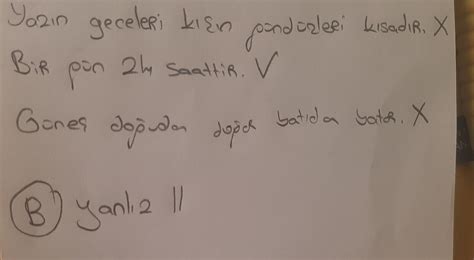 Yazın geceleri kışın gündüzleri kısadır. X
Bir gün 24 saattir. V
Güneş doğudan doğar batıdan batar. X
B) yanlız II